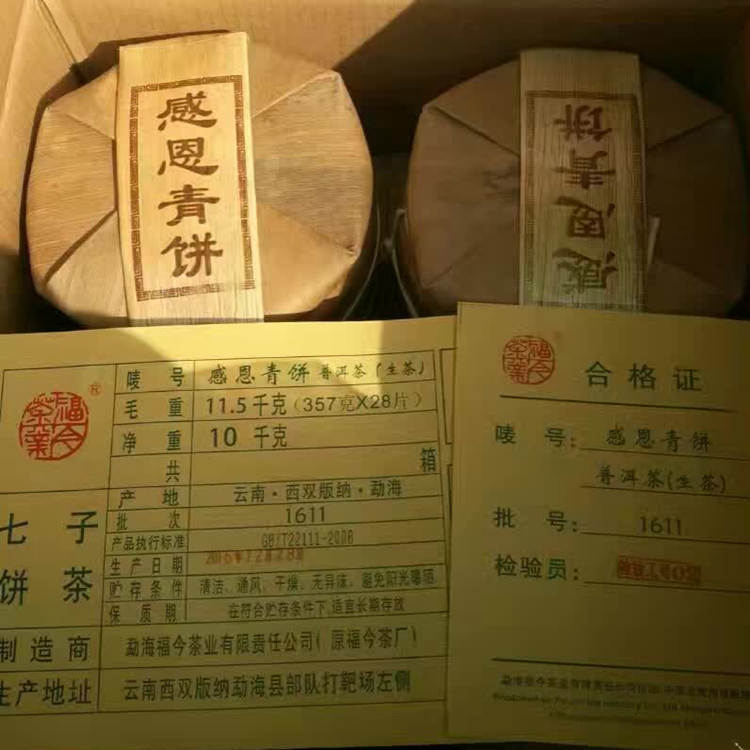 感恩青饼
感恩青饼
福今茶业
®
七子
饼茶
唛号 感恩青饼 普洱茶(生茶)
毛重 11.5千克(357克X28片)
净重 10 千克
共 箱
产地 云南·西双版纳·勐海
批次 1611
产品执行标准 GB/T22111-2008
生产日期 2016年12月28日
贮存条件 清洁、通风、干燥、无异味、避免阳光曝晒
保质期 在符合贮存条件下,适宜长期存放
制造商 勐海福今茶业有限责任公司(原福今茶厂)
生产地址 云南西双版纳勐海县部队打靶场左侧
福今茶业
合格证
唛号: 感恩青饼
普洱茶(生茶)
批号: 1611
检验员:
勐海福今茶业有限责任公司